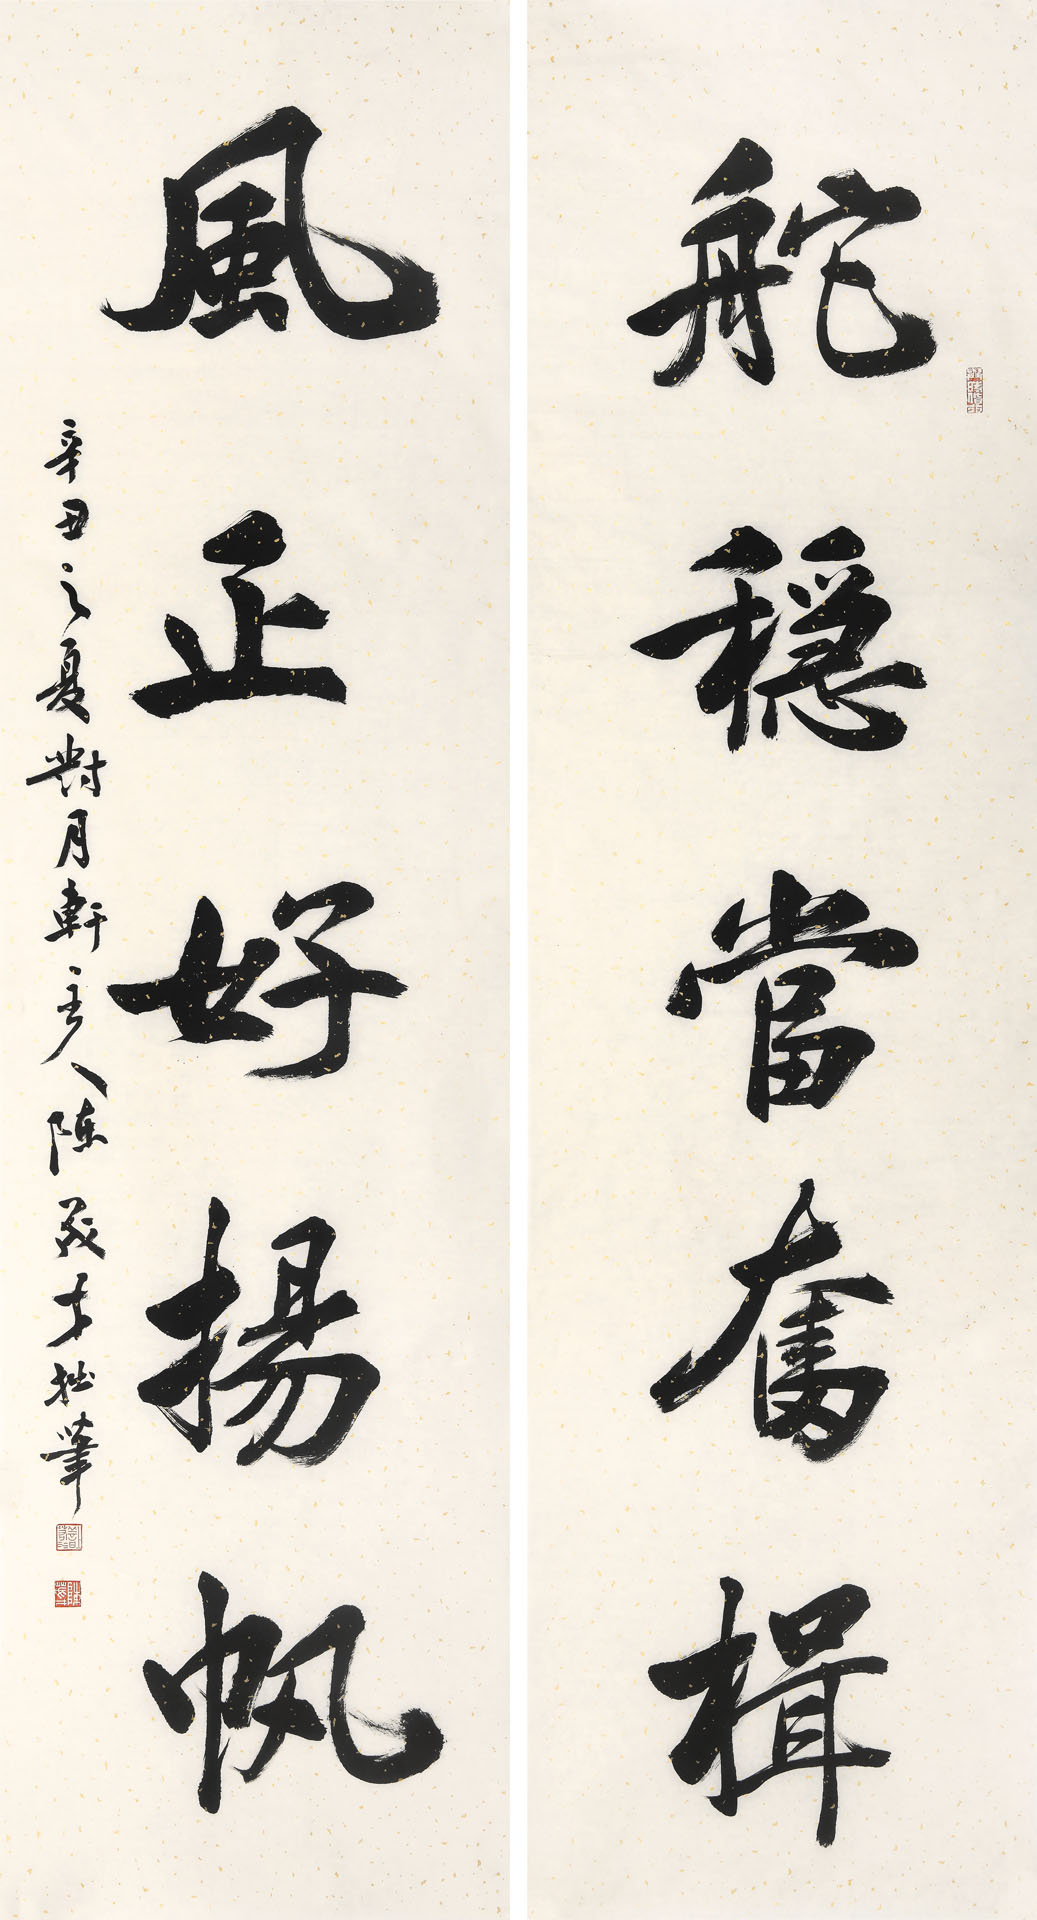 舵穩當奮楫
風正好揚帆
辛丑之夏對月軒主人陳茂才拙筆